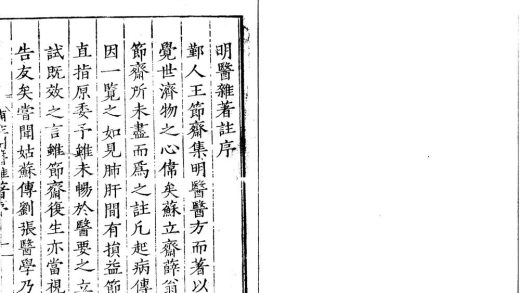 明醫雜著註序
鄞人王節齋集明醫醫方而著以
覺世濟物之心偉矣蘇立齋薛翁
節齋所未盡而爲之註凡起病傳
因一覽之如見肺肝間有損益節
直指原委予雖未暢於醫要之立
試既效之言雖節齋復生亦當視
告友矣嘗聞姑蘇傳劉張醫學乃
醫雜著序 一